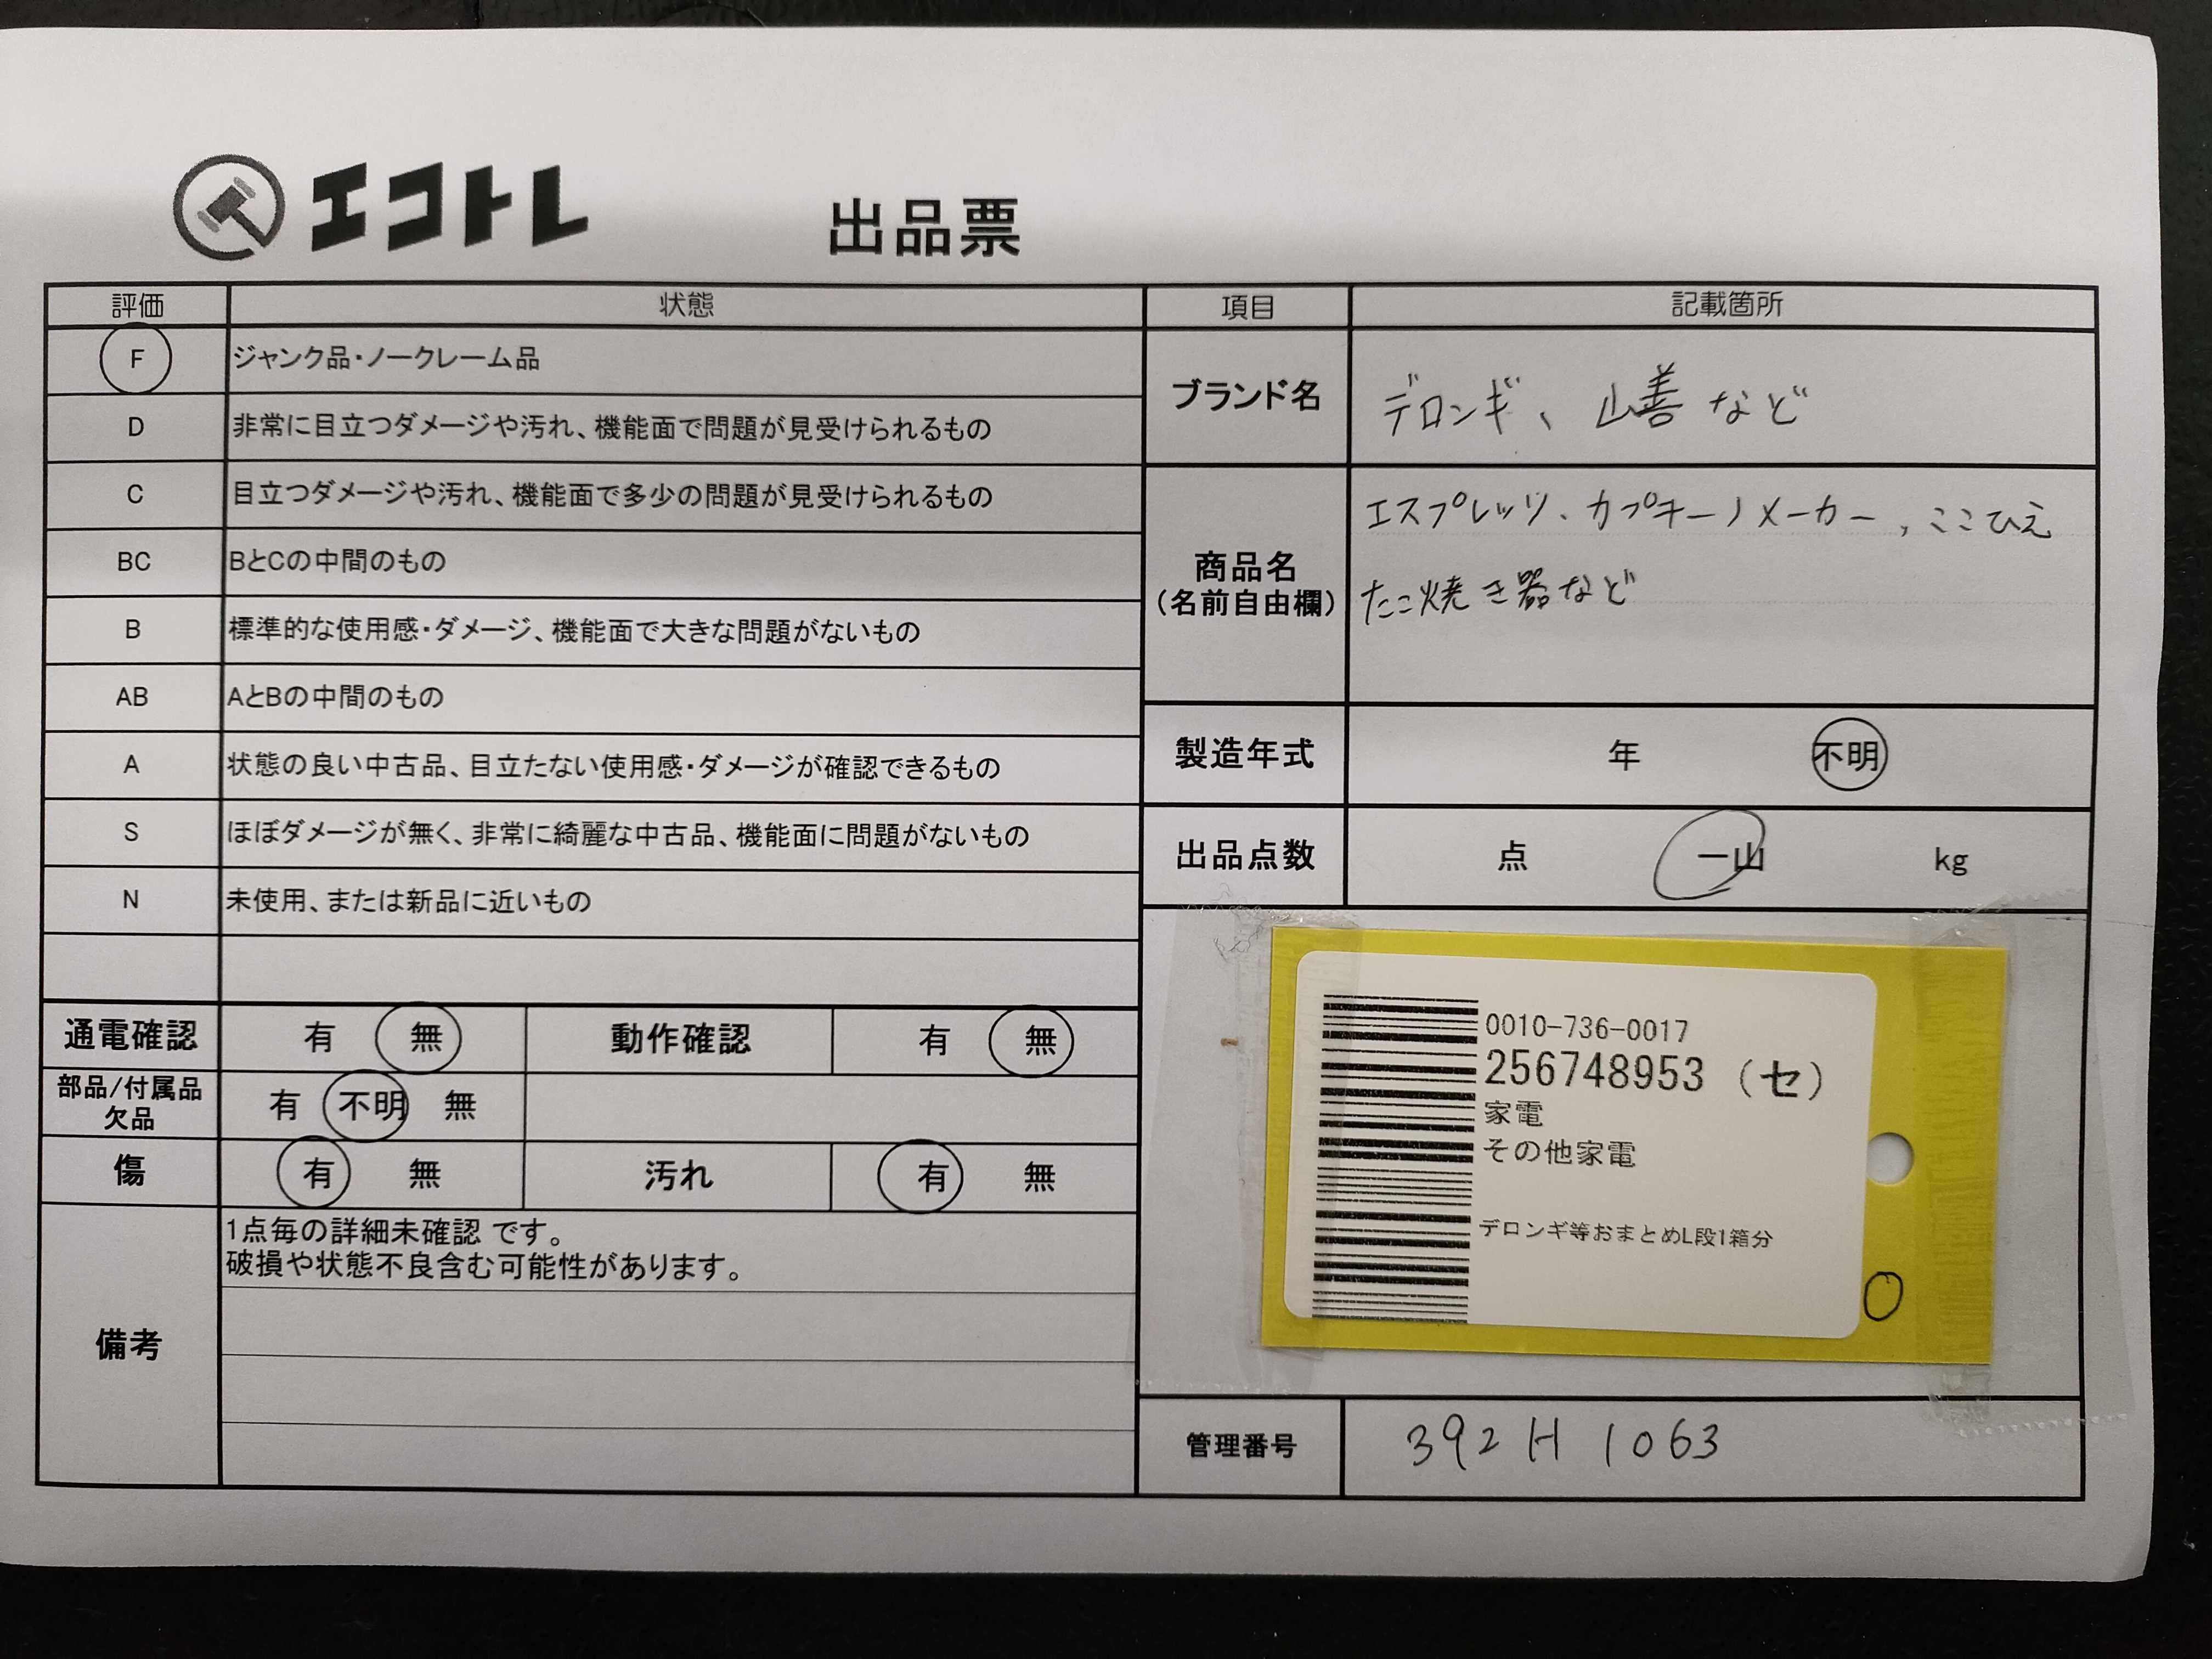 エコトレ
出品票
評価 状態
F ジャンク品・ノークレーム品
D 非常に目立つダメージや汚れ、機能面で問題が見受けられるもの
C 目立つダメージや汚れ、機能面で多少の問題が見受けられるもの
BC BとCの中間のもの
B 標準的な使用感・ダメージ、機能面で大きな問題がないもの
AB AとBの中間のもの
A 状態の良い中古品、目立たない使用感・ダメージが確認できるもの
S ほぼダメージが無く、非常に綺麗な中古品、機能面に問題がないもの
N 未使用、または新品に近いもの
通電確認 有 無 動作確認 有 無
部品/付属品
欠品
有 不明 無
傷 有 無 汚れ 有 無
備考
1点毎の詳細未確認 です。
破損や状態不良含む可能性があります。
項目 記載箇所
ブランド名 デロンギ、山善など
商品名
(名前自由欄)
エスプレッソ、カプチーノメーカー、ここひえ
たこ焼き器など
製造年式 年 不明
出品点数 点 一山 kg
0010-736-0017
256748953 (セ)
家電
その他家電
デロンギ等おまとめL段1箱分
管理番号 392H1063